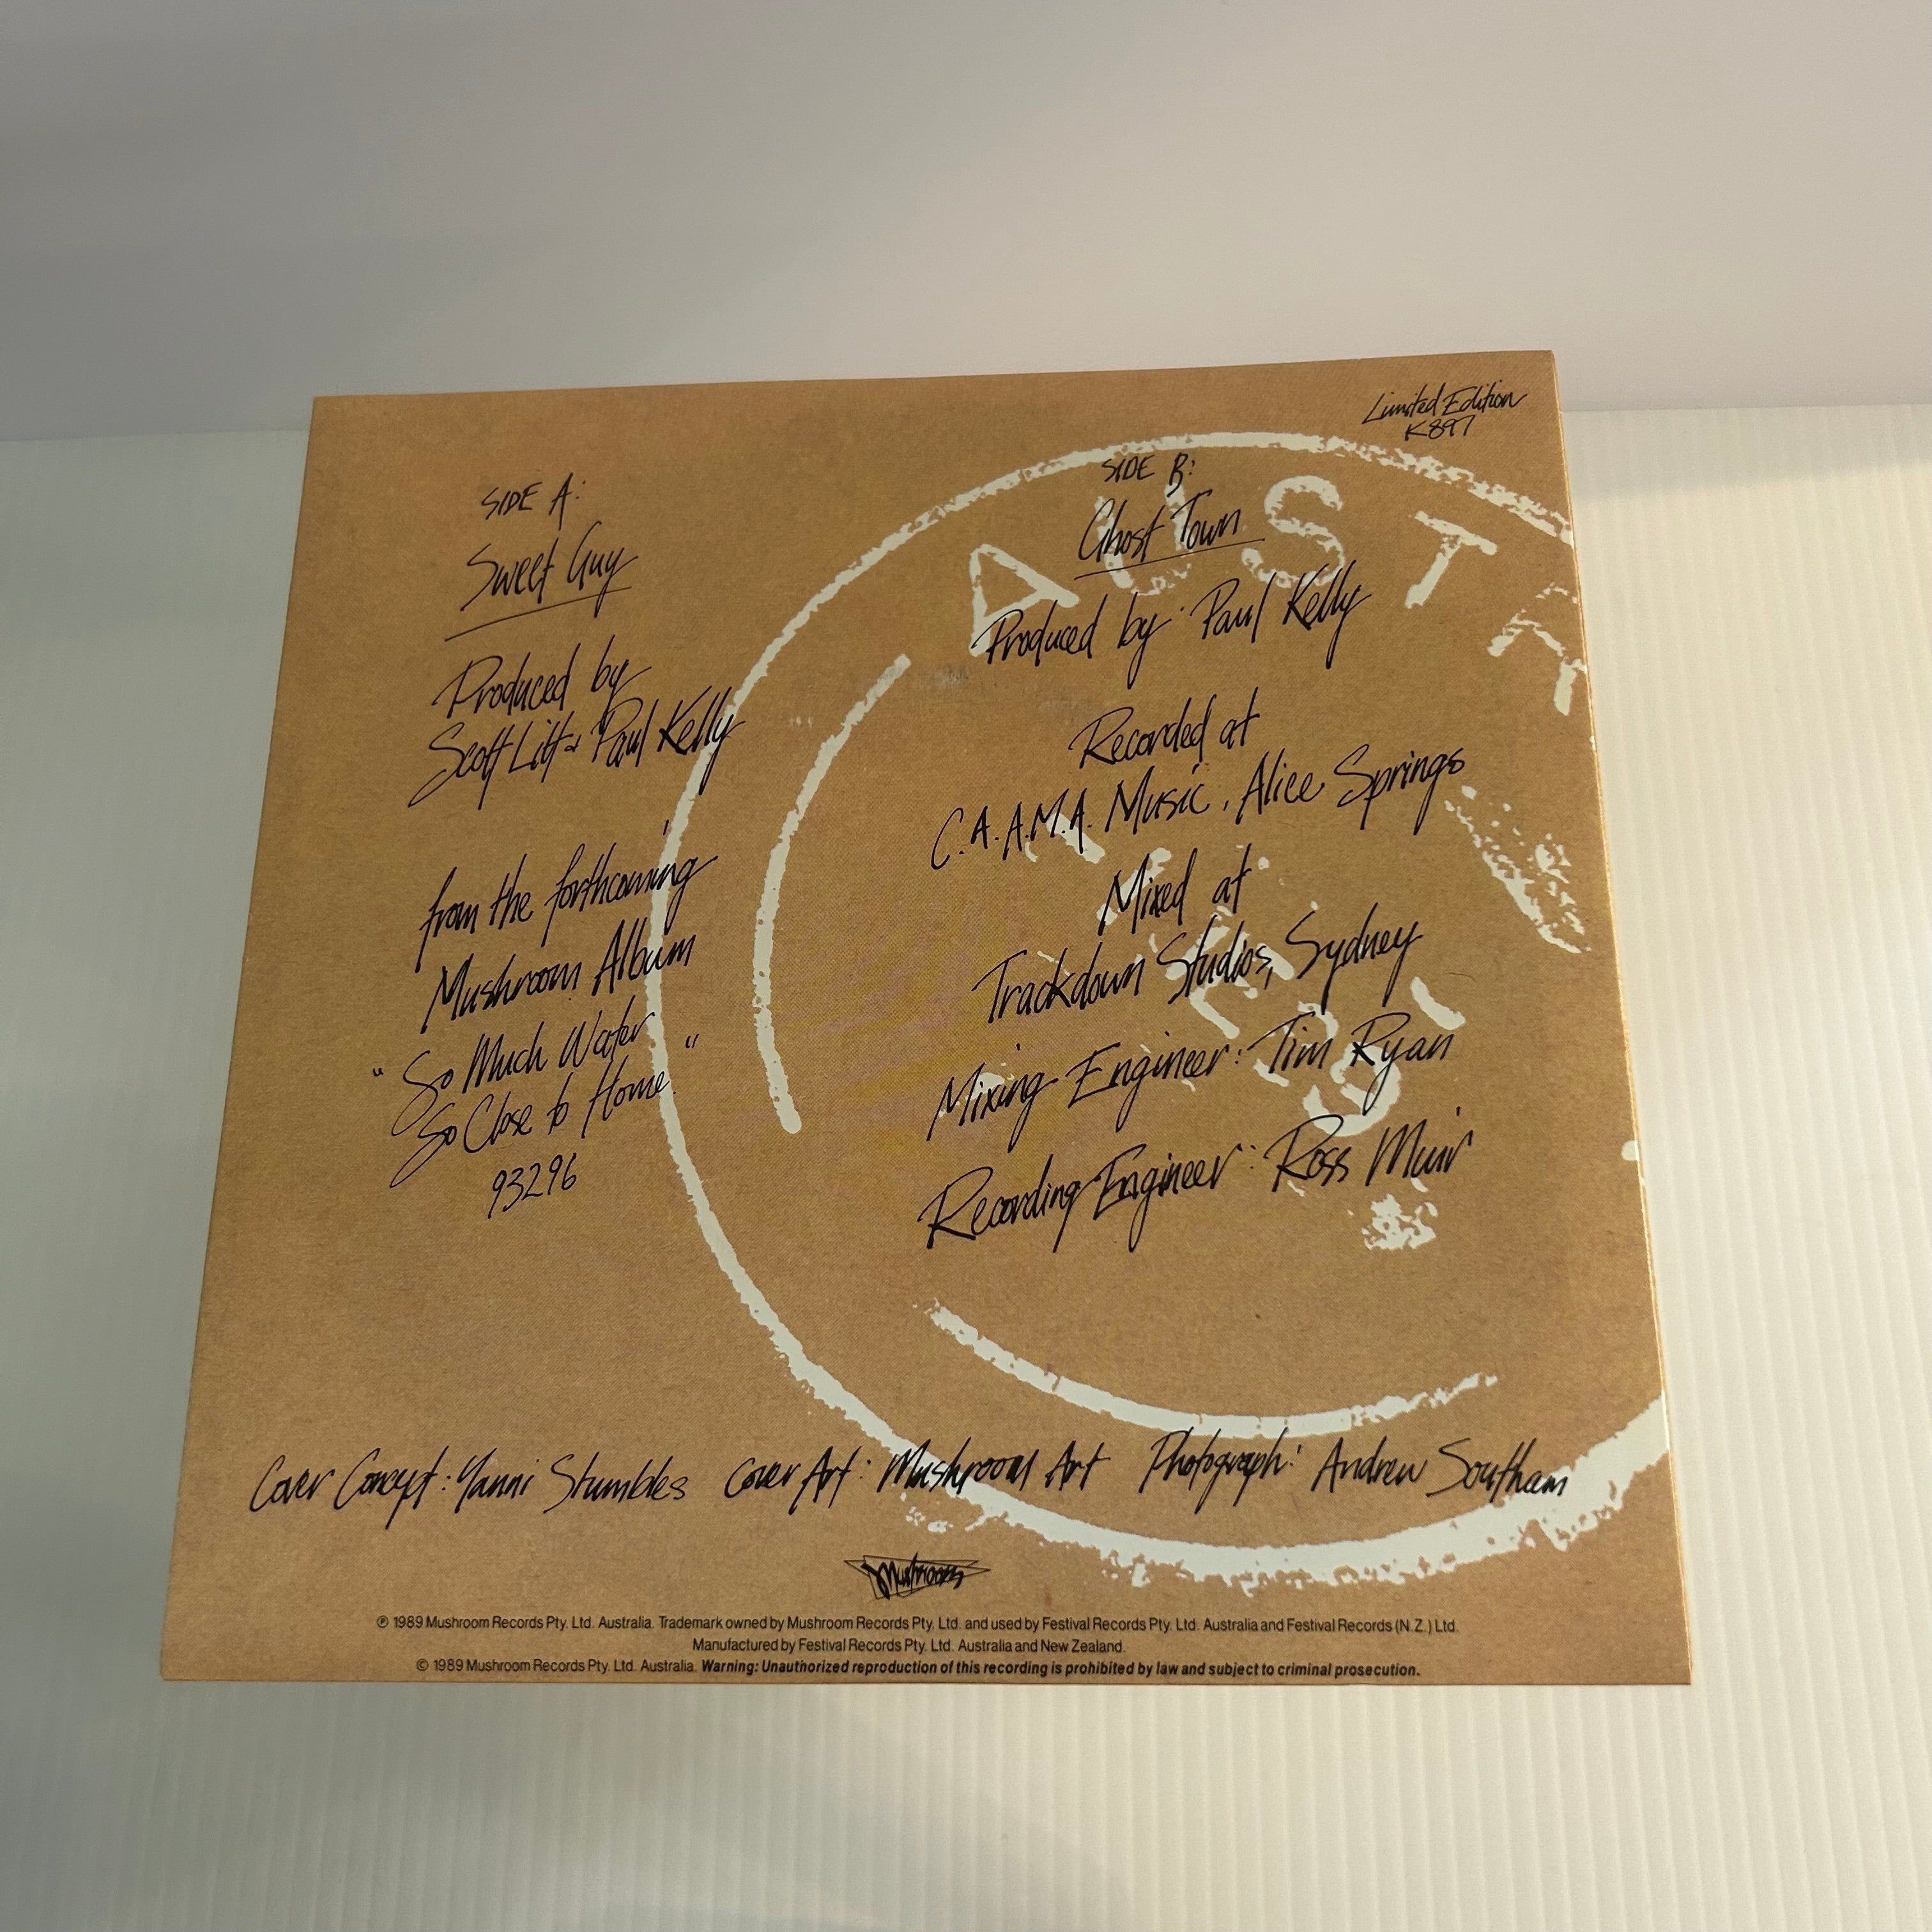 Limited Edition
K897
SIDE A:
Sweet Guy
Produced by
Scott Litt & Paul Kelly
from the forthcoming
Mushroom Album
"So Much Water
So Close to Home"
93296
SIDE B:
Ghost Town
Produced by: Paul Kelly
Recorded at
C.A.A.M.A. Music, Alice Springs
Mixed at
Trackdown Studios, Sydney
Mixing Engineer: Tim Ryan
Recording Engineer: Ross Muir
AUST
Cover Concept: Yanni Stumbles Cover Art: Mushroom Art Photograph: Andrew Southam
Mushroom
℗ 1989 Mushroom Records Pty. Ltd. Australia. Trademark owned by Mushroom Records Pty. Ltd. and used by Festival Records Pty. Ltd. Australia and Festival Records (N.Z.) Ltd.
Manufactured by Festival Records Pty. Ltd. Australia and New Zealand.
© 1989 Mushroom Records Pty. Ltd. Australia. Warning: Unauthorized reproduction of this recording is prohibited by law and subject to criminal prosecution.